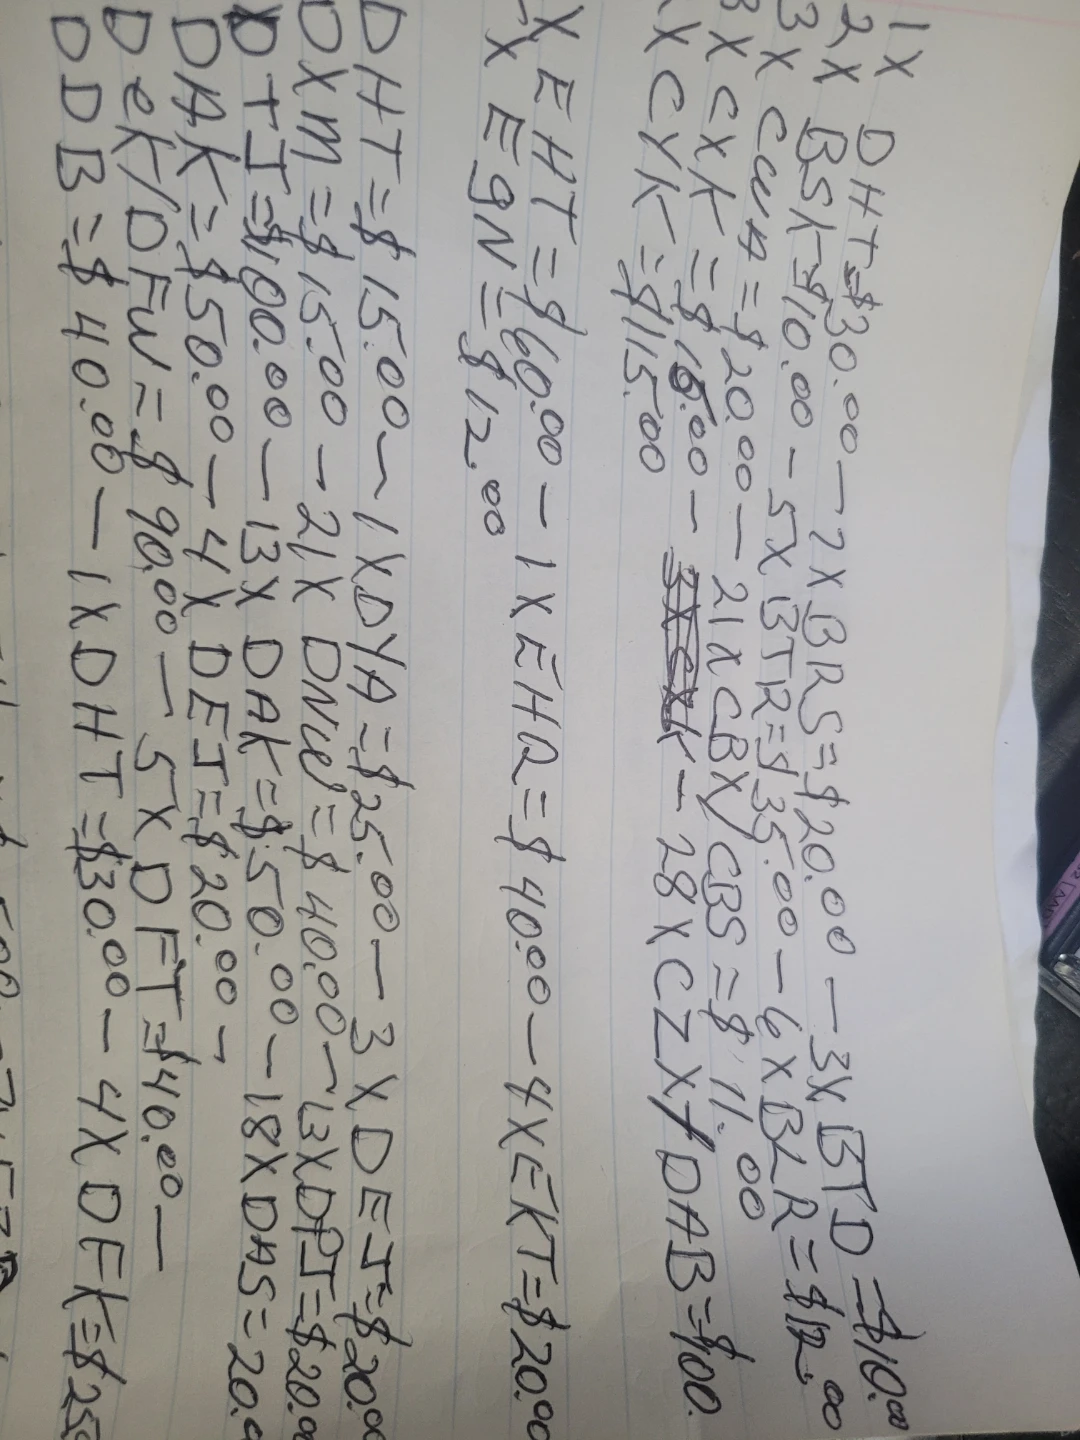 1X DHT=$30.00 - 2XBRS=$20.00 - 3XBTD=$10.00
2X BSK=$10.00 - 5XBTR=$35.00 - 6XBLR=$12.00
3X CWA=$20.00 - 21XCBX/CBS=$11.00
3X CXK=$15.00 - - 28XCZX/DAB=$100.
X CYK=$115.00
X EHT=$60.00 - 1XEHR=$40.00 - 4XEKT=$20.00
X EGN=$12.00
DHT=$15.00 - 1XDYA=$25.00 - 3XDEJ=$20.00
DXM=$15.00 - 21X DNW=$40.00 - 13XDPJ=$20.00
DTJ=$100.00 - 13X DAK=$50.00 - 18XDAS=20.0
DAK=$50.00 - 4X DEJ=$20.00 -
DeK/DFW=$90.00 - 5XDFT=$40.00 -
DDB=$40.00 - 1XDHT=$30.00 - 4XDFK=$25